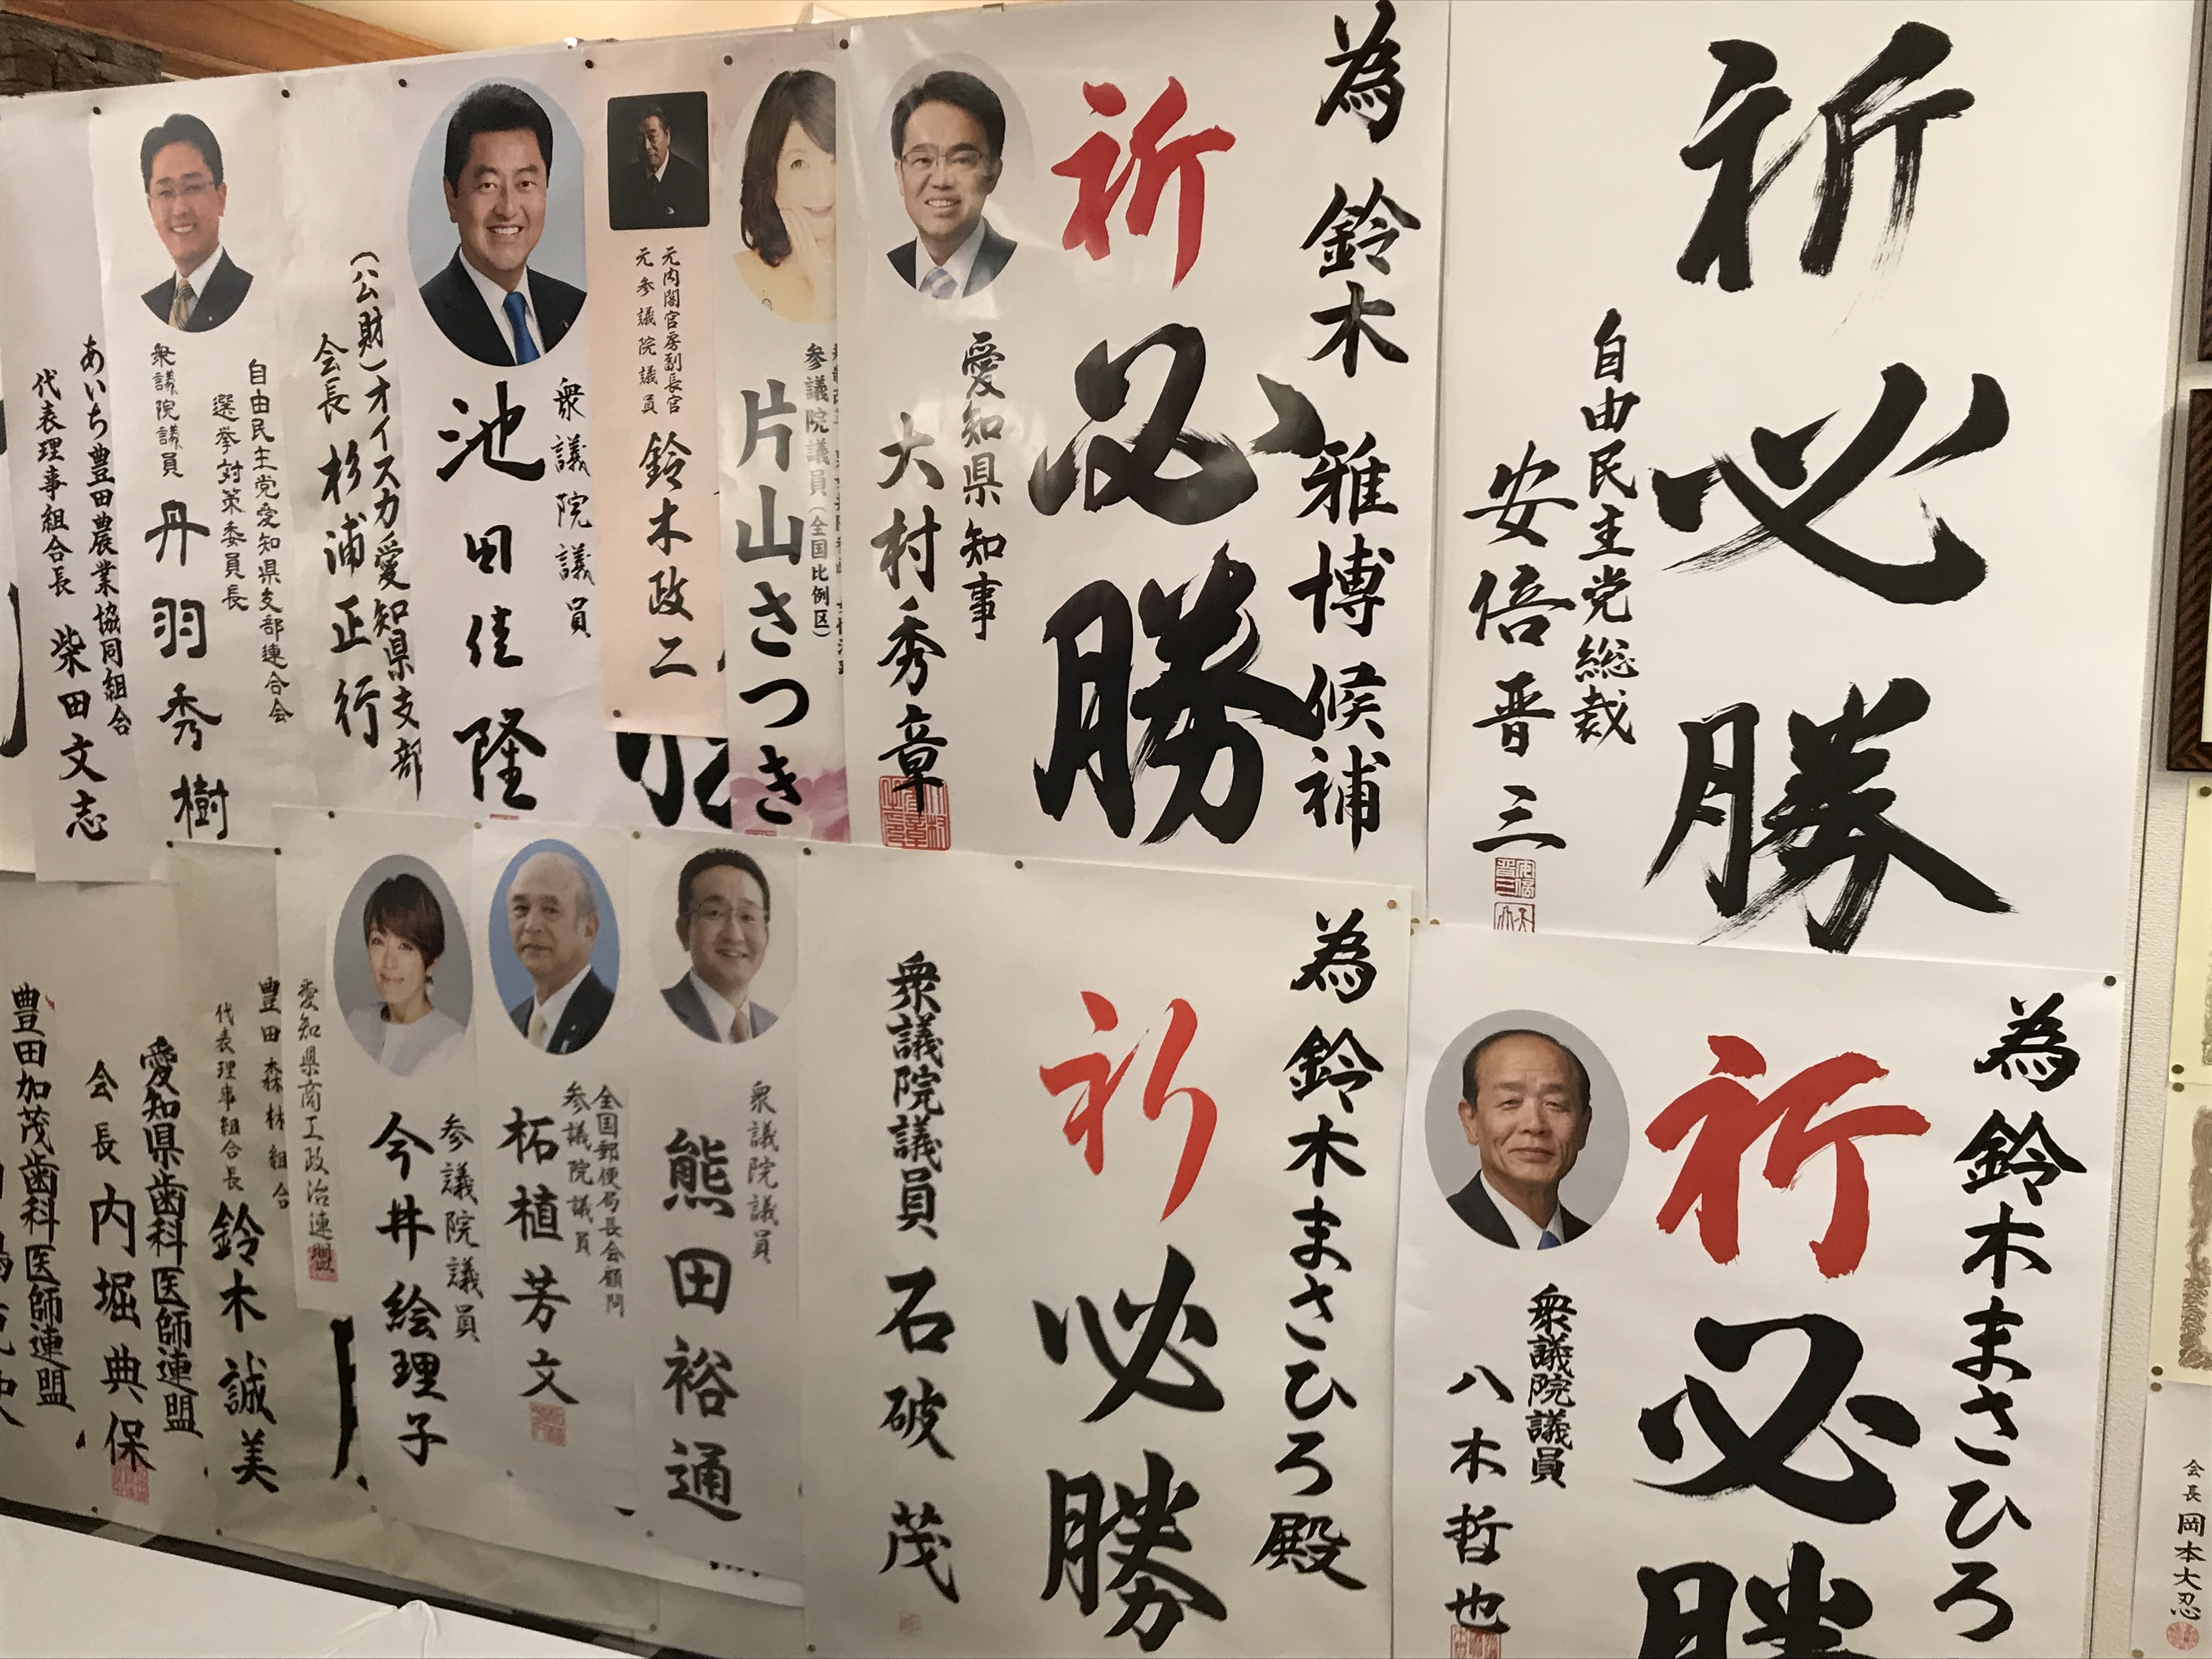 祈必勝
自由民主党総裁
安倍晋三
為 鈴木雅博候補
祈必勝
愛知県知事
大村秀章
参議院議員(全国比例区)
片山さつき
元内閣官房副長官
元参議院議員
鈴木政二
衆議院議員
池田佳隆
(公財)オイスカ愛知県支部
会長 杉浦正行
自由民主党愛知県支部連合会
選挙対策委員長
衆議院議員
丹羽秀樹
あいち豊田農業協同組合
代表理事組合長 柴田文志
為 鈴木まさひろ
祈必勝
衆議院議員
八木哲也
為 鈴木まさひろ殿
祈必勝
衆議院議員 石破茂
衆議院議員
熊田裕通
全国郵便局長会顧問
参議院議員
柘植芳文
参議院議員
今井絵理子
愛知県商工政治連盟
豊田森林組合
代表理事組合長 鈴木誠美
愛知県歯科医師連盟
会長 内堀典保
豊田加茂歯科医師連盟
会長 岡本大忍